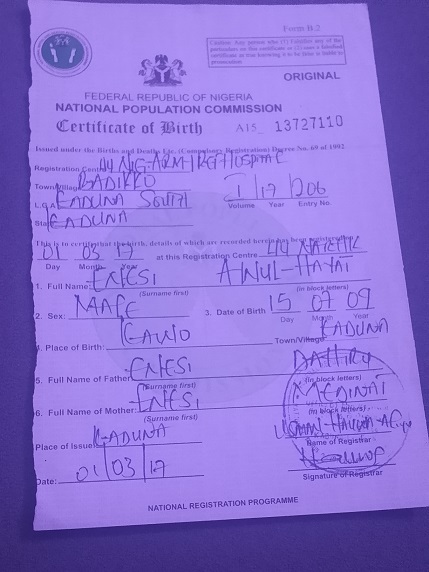 Form B.2
Caution: Any person who (1) Falsifies any of the
particulars on this certificate or (2) uses a falsified
certificate as true knowing it to be false is liable to
prosecution
ORIGINAL
FEDERAL REPUBLIC OF NIGERIA
NATIONAL POPULATION COMMISSION
Certificate of Birth A15 13727110
Issued under the Births and Deaths Etc. (Compulsory Registration) Decree No. 69 of 1992
Registration Centre 44 NIG-ARMY REF HOSPITAL
Town/Village BADIKKO
L.G.A KADUNA SOUTH 1 17 206
Volume Year Entry No.
State KADUNA
This is to certify that the birth, details of which are recorded herein has been registered on
01 03 17 at this Registration Centre
Day Month Year
1. Full Name: ENESI ANUL-HAYAT
(Surname first) (in block letters)
2. Sex: MALE 3. Date of Birth 15 07 09
Day Month Year
4. Place of Birth: Town/Village KADUNA
5. Full Name of Father ENESI
(Surname first) (in block letters)
6. Full Name of Mother: ENESI MEDINAT
(Surname first) (in block letters)
Place of Issue KADUNA
Name of Registrar
Date: 01 03 17
Signature of Registrar
NATIONAL REGISTRATION PROGRAMME